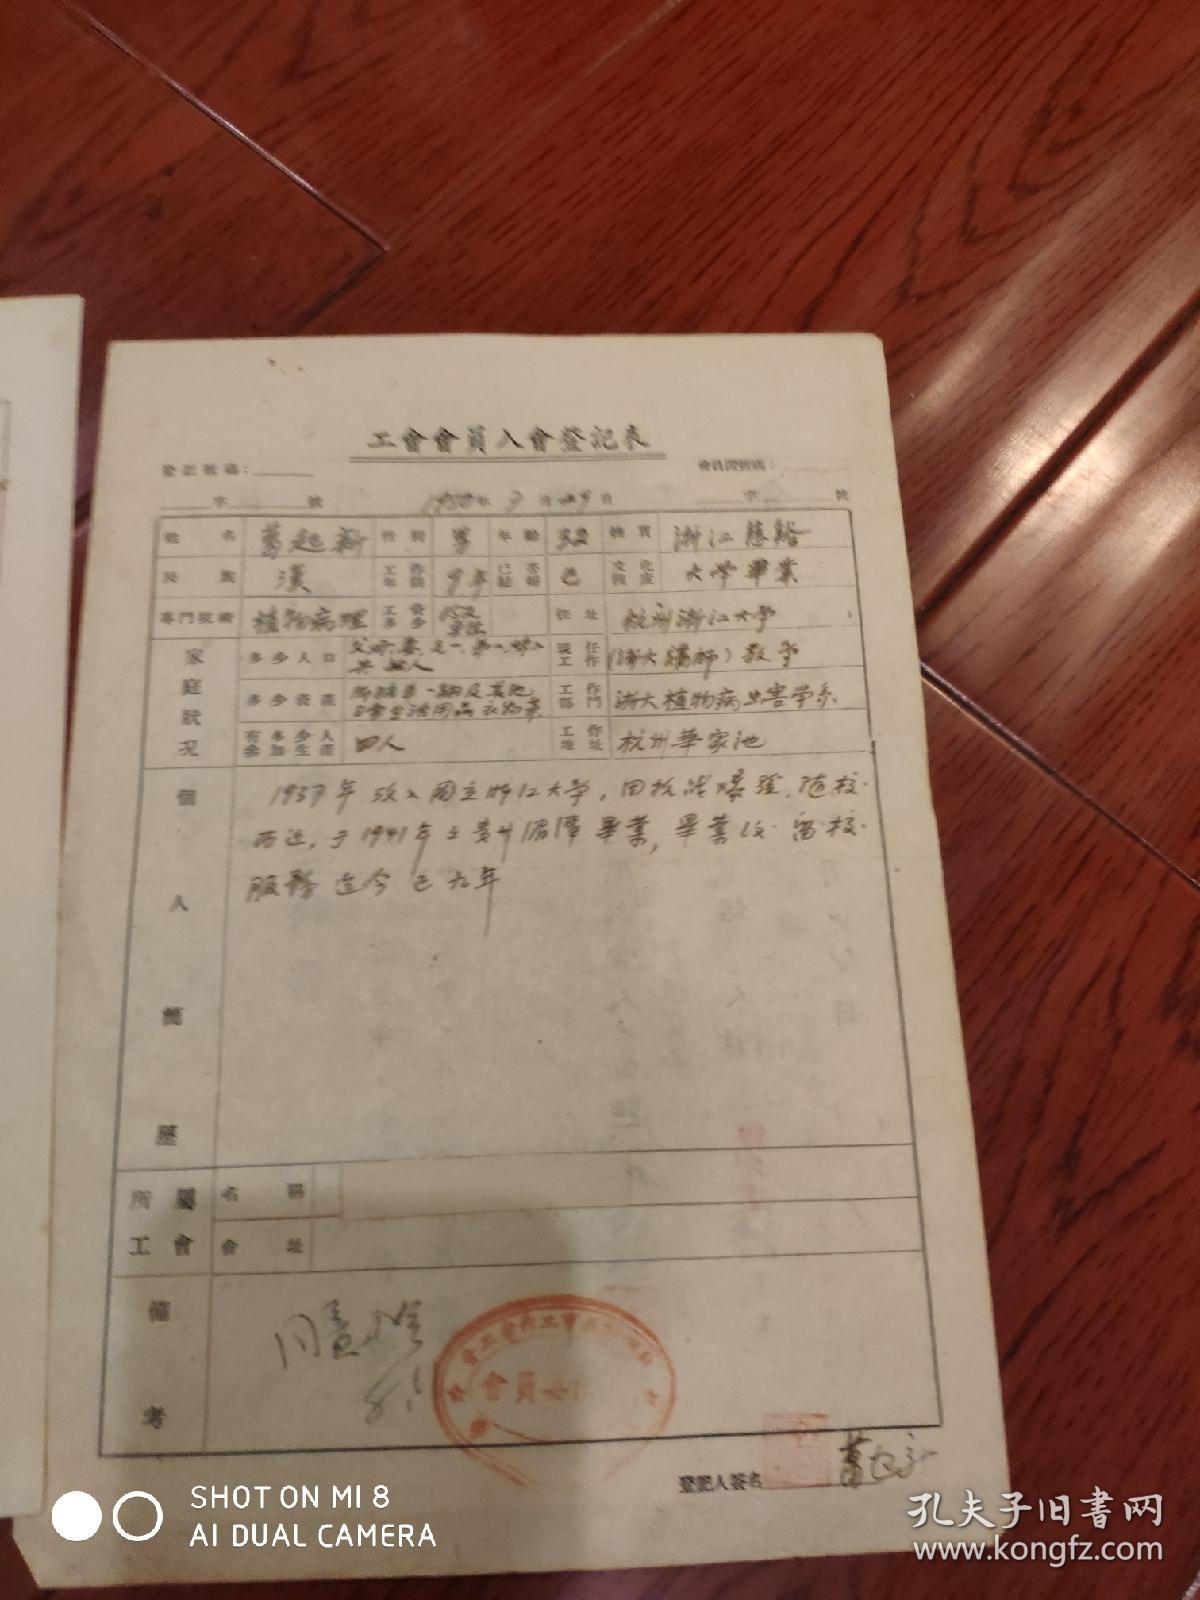 工會會員入會登記表
登記號碼：
會員證號碼：
字 號 1950年7月29日 字 號
姓名 葛起新 性別 男 年齡 32 籍貫 浙江慈谿
民族 漢 工作年齡 9年 已否結婚 已 文化程度 大學畢業
專門技術 植物病理 工資多少 住址 杭州浙江大學
家庭狀況 多少人口 現任工作 (浙大講師)教學
多少資產 工作部門 浙大植物病虫害学系
日常生活用品衣物等
有多少人參加生產 四人 工作地址 杭州華家池
個人簡歷
1937年攷入國立浙江大學，因抗战爆發，随校
西迁，于1941年在貴州湄潭畢業，畢業后留校
服務迄今已九年
所屬工會 名稱
會址
備考
同意
登記人簽名 葛起新
SHOT ON MI 8
AI DUAL CAMERA
孔夫子旧书网
www.kongfz.com